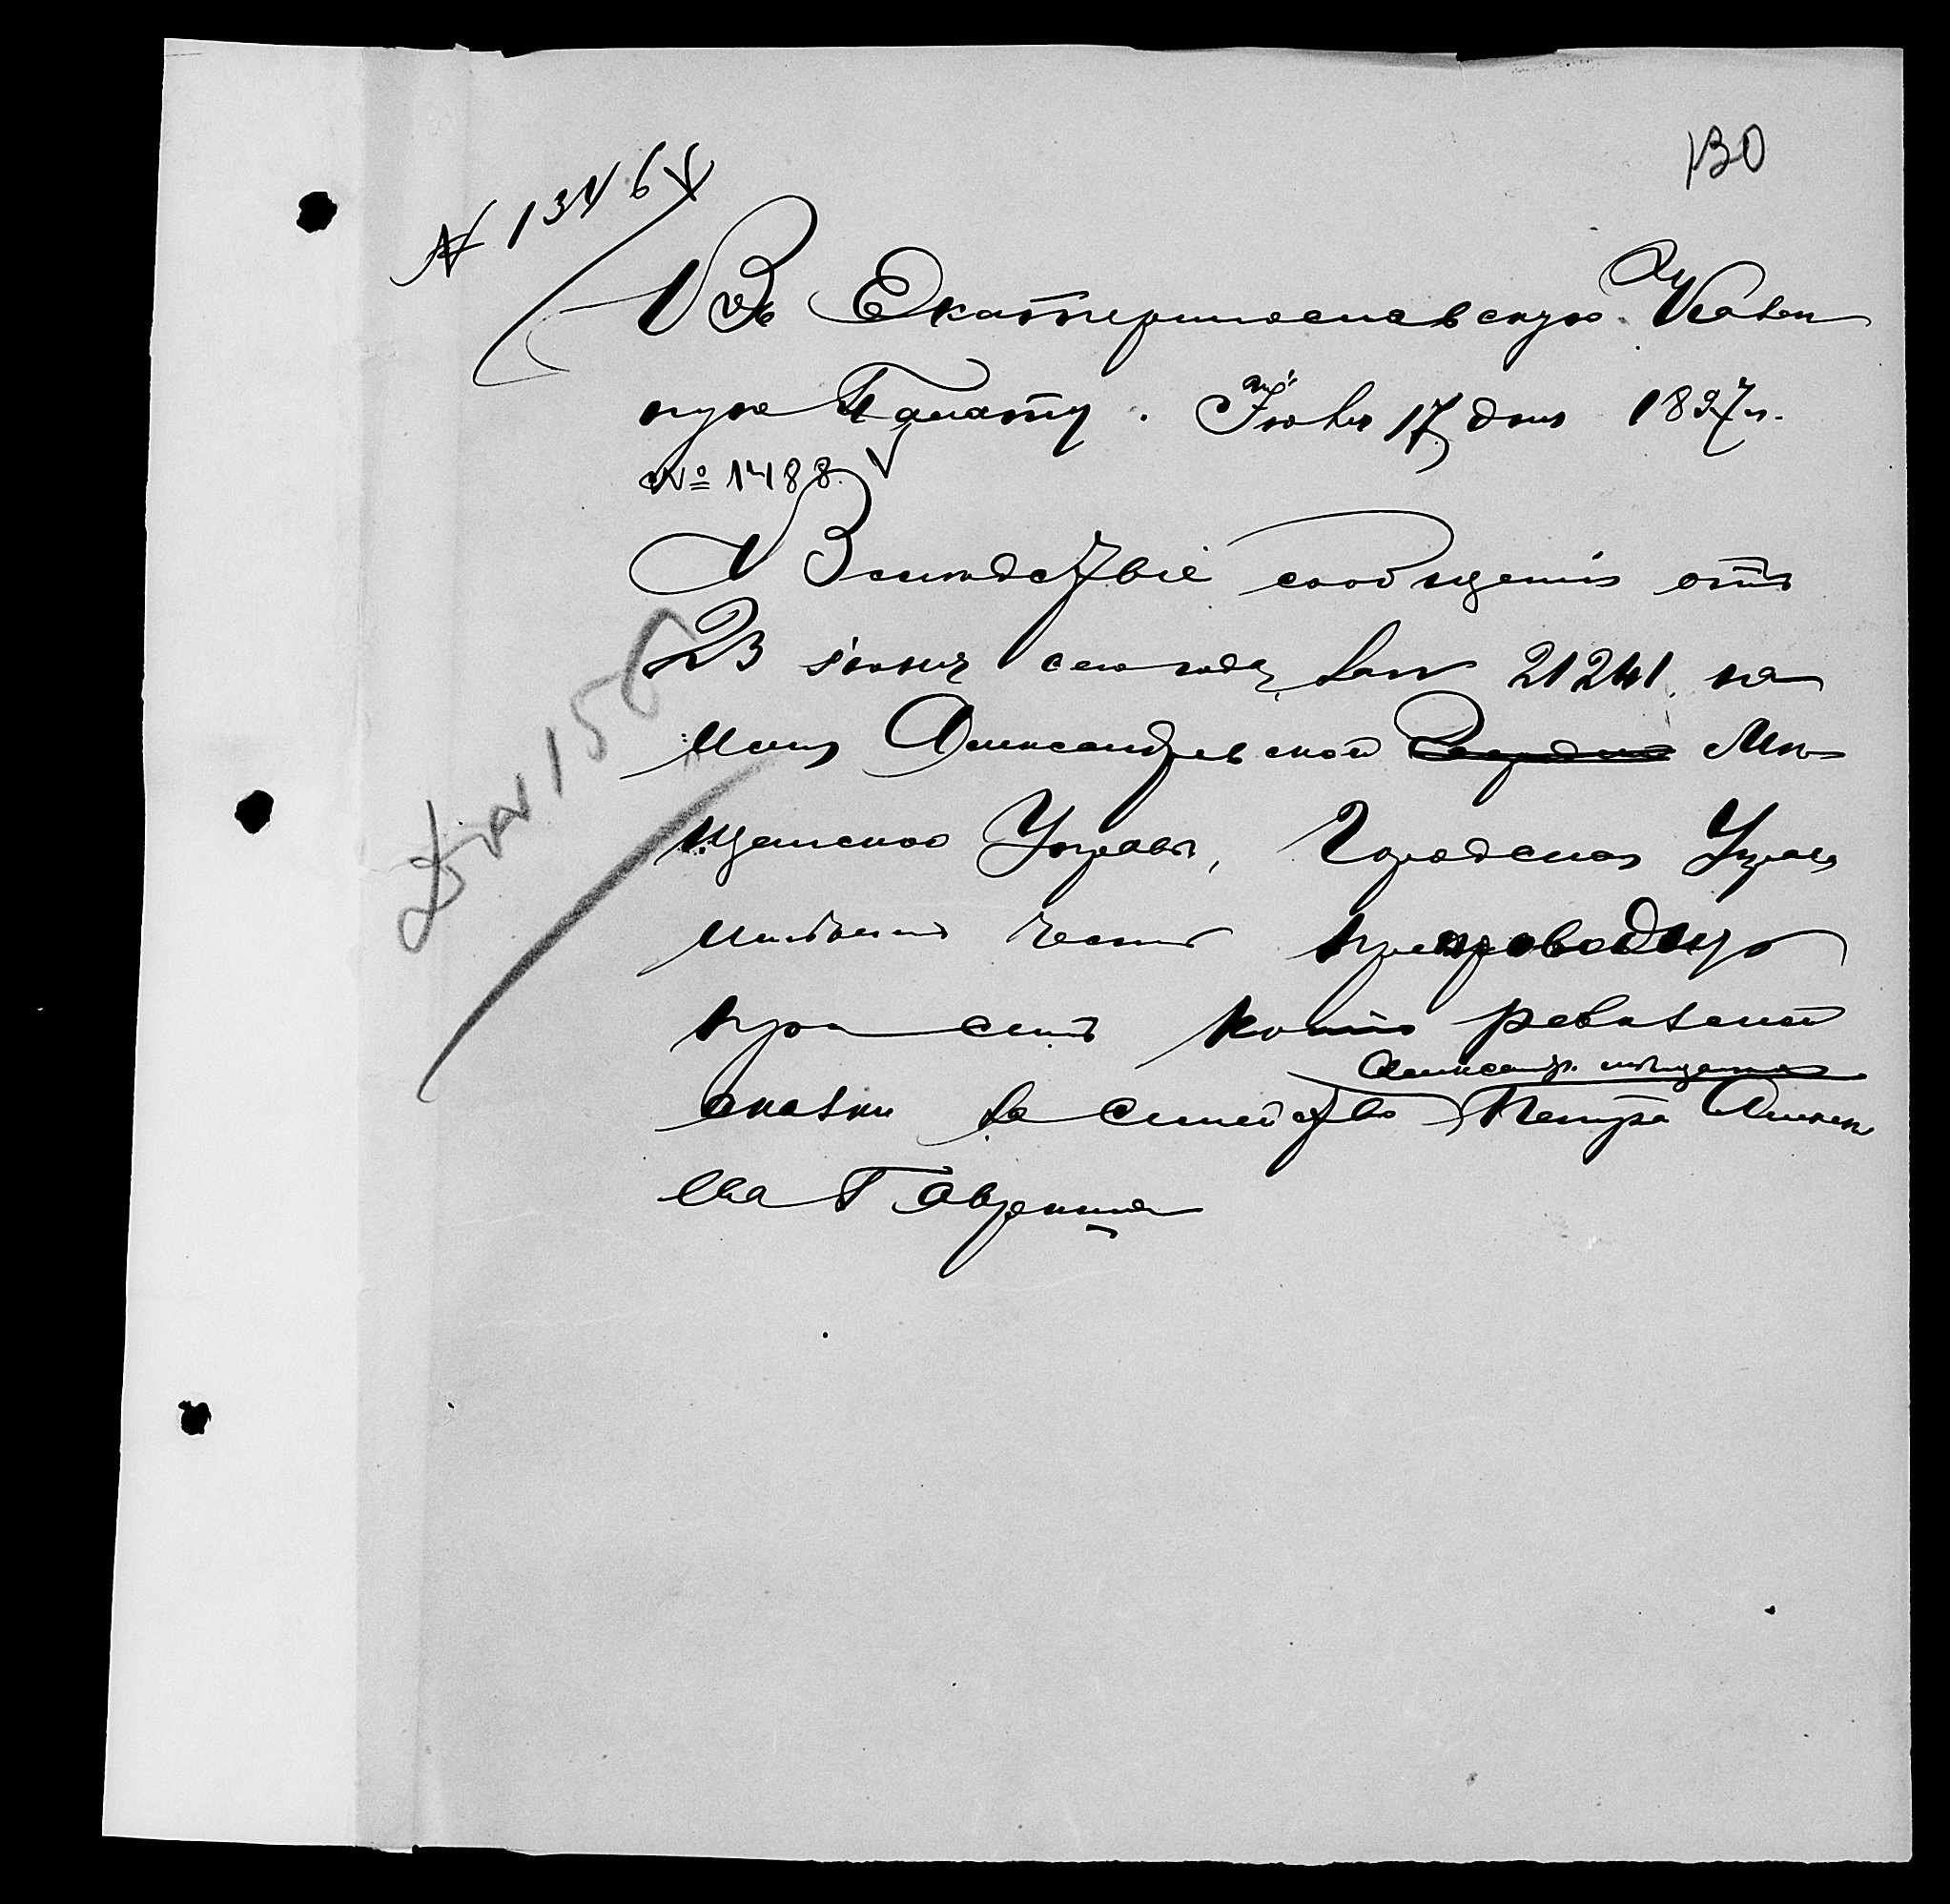 130
№ 13464
Въ Екатеринославскую Казен
ную Палату. Июля 17 дня 1897 г.
№ 1488
Вследствіе сообщенія отъ
23 іюня сего года за № 21241 на
имя Александровской Мѣ-
щанской Управы, Городская Управа
имѣетъ честь препроводить
при семъ копію ревизской
Александр. мѣщанина
сказки на семейство Петра Алексѣ
ева Гавриша